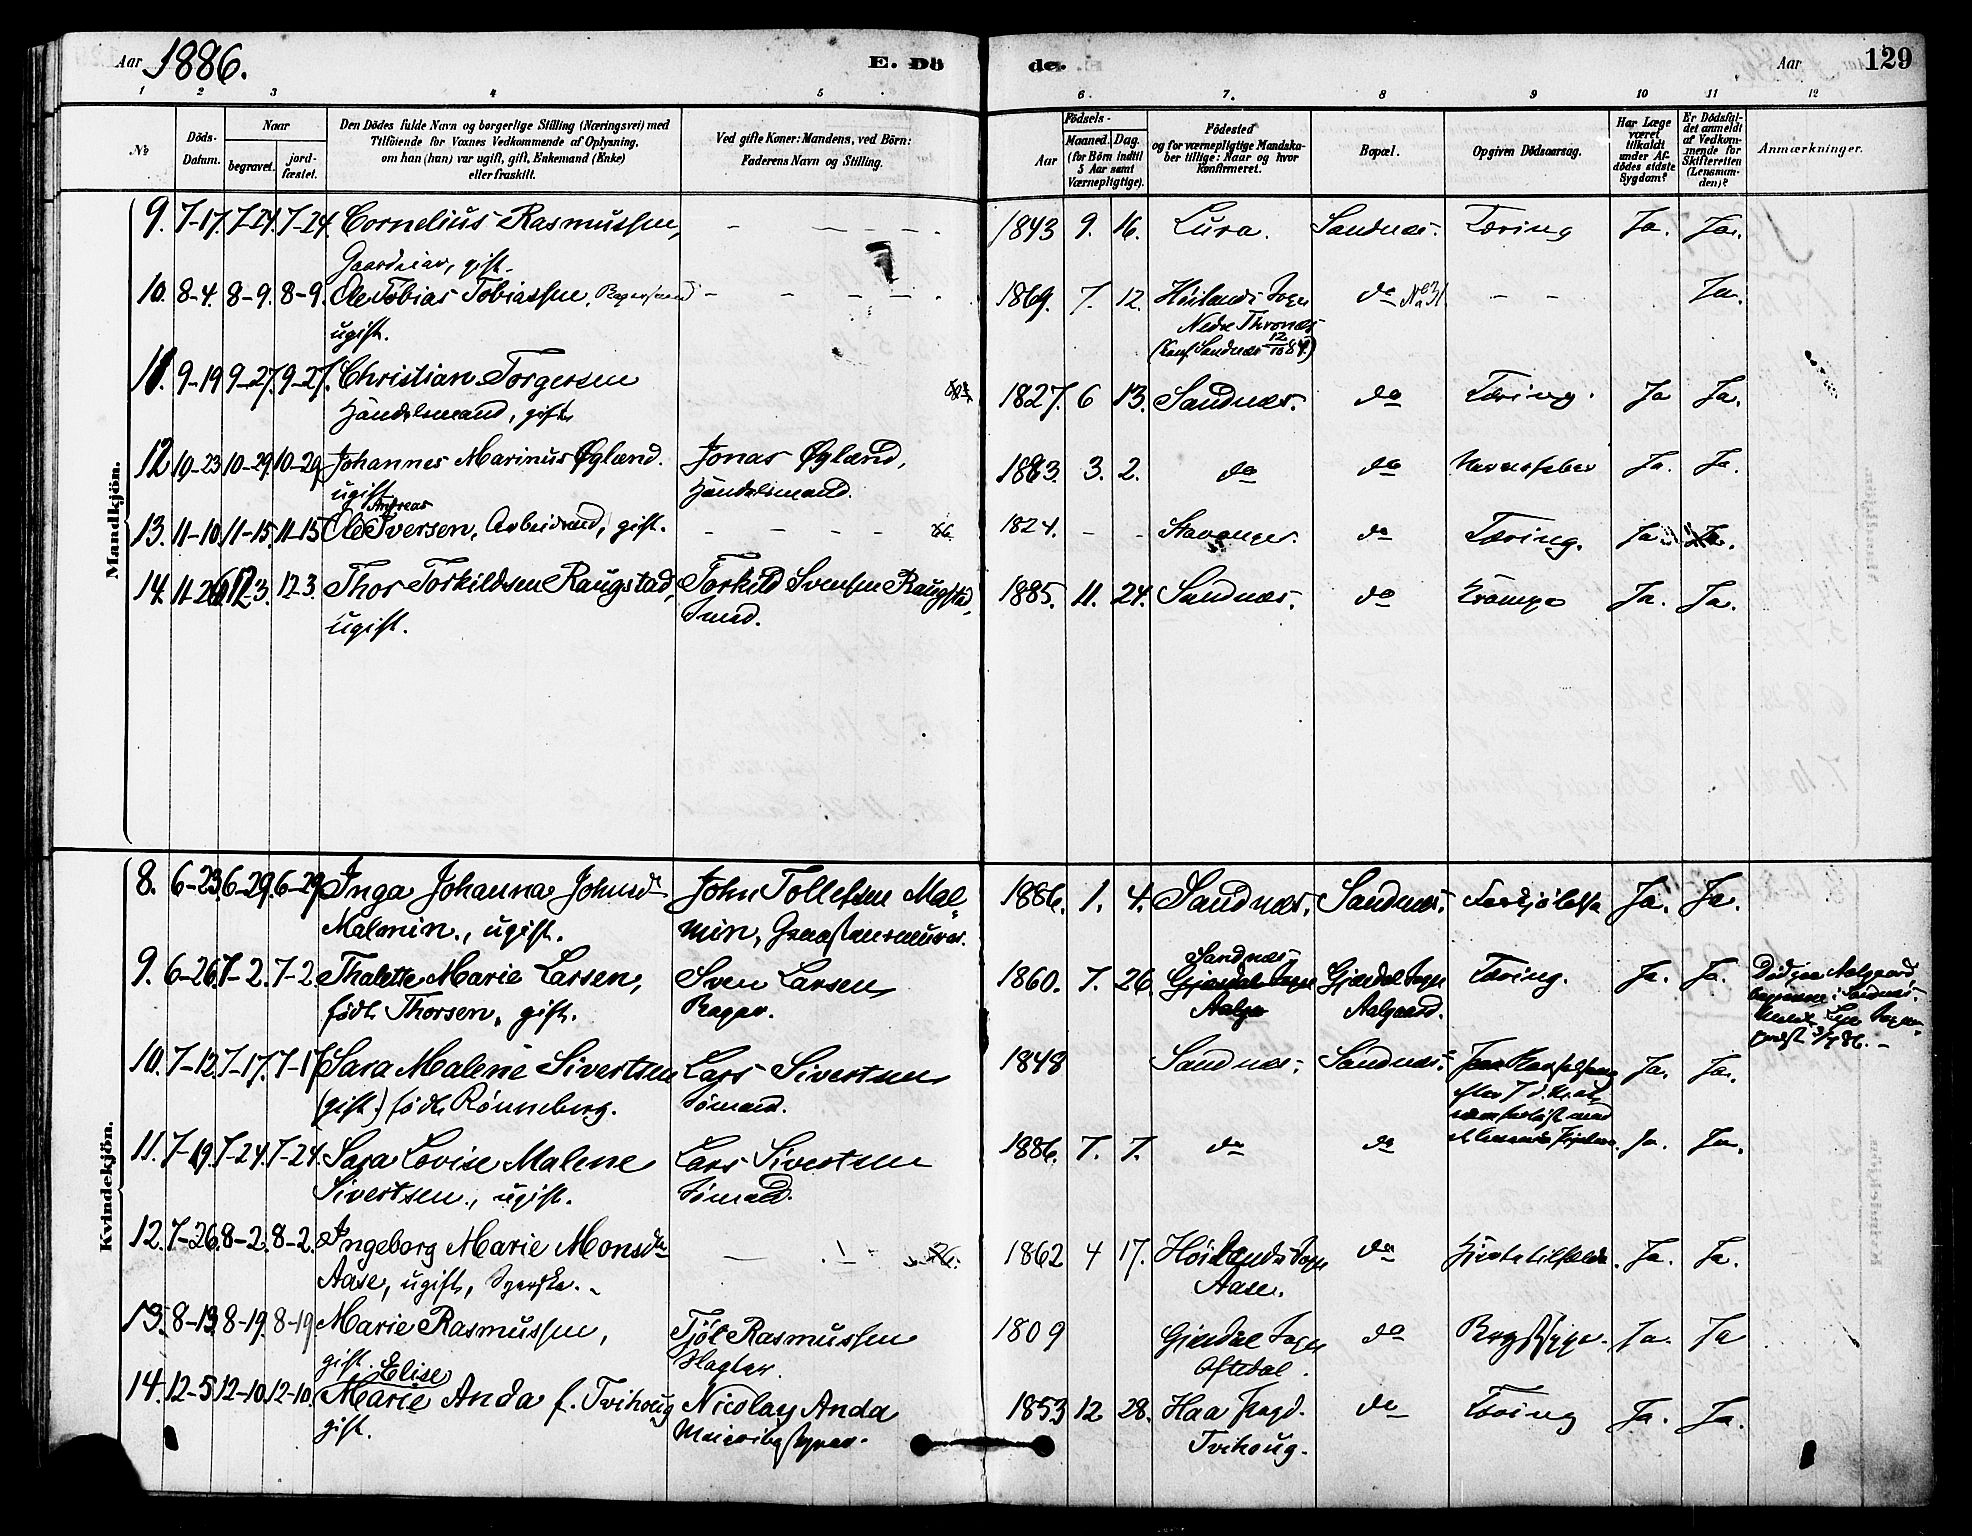 Aar 1886. E. Dö
de. Aar 129
1 2 3 4 5 6. 7. 8 9 10 11 12
№
Döds-Datum.
Naar
begravet. jordfæstet.
Den Dödes fulde Navn og borgerlige Stilling (Næringsvei) med
Tilföiende for Voxnes Vedkommende af Oplysning,
om han (hun) var ugift, gift, Enkemand (Enke)
eller fraskilt.
Ved gifte Koner: Mandens, ved Börn:
Faderens Navn og Stilling.
Födsels-
Aar Maaned. Dag.
(for Börn indtil
5 Aar samt
Værnepligtige).
Födested
og for værnepligtige Mandska-
ber tillige: Naar og hvor
konfirmeret.
Bopæl.
Opgiven Dödsaarsag.
Har Læge
været
tilkaldt
under Af-
dödes sidste
Sygdom?
Er Dödsfal-
det anmeldt
af Vedkom-
mende for
Skifteretten
(Lensman-
den)?
Anmærkninger.
Mandkjön.
9. 7-17. 7-24. 7-24. Cornelius Rasmussen, - - - - 1843 9. 16. Lura. Sandnæs. Tæring Ja. Ja.
Gaardeier, gift.
10. 8-4. 8-9. 8-9. Ole Tobias Tobiassen, - - - - 1869. 7. 12. Höilands Sogn do No 31 - - Ja.
ugift. Nedre Thronæs
(Konf. Sandnæs 12/10 84.)
11. 9-19 9-27. 9-27. Christian Torgersen 1827. 6 13. Sandnæs. do Tæring. Ja Ja.
Handelsmand, gift
12 10-23 10-29. 10-29 Johannes Marinus Øglænd. Jonas Øglænd, 1883. 3. 2. do do Ja. Ja.
ugift Handelsmand.
Andreas
13. 11-10. 11-15. 11-15 Ole Iversen, Arbeidsmd, gift. - - - - 1824. - - Stavanger. do Tæring. Ja. Ja.
14. 11-26 12-3. 12 3. Thor Torkildsen Raugstad, Torkild Svensen Raugstad, 1885. 11. 24. Sandnæs. do Krampe Ja. Ja.
ugift. Smed.
Kvindekjön.
8. 6-23. 6-29. 6-29 Inga Johanna Johnsdr John Tollefsen Mal- 1886. 1. 4. Sandnæs. Sandnæs. Forkjölelse Ja. Ja.
Malmin., ugift. min,
9. 6-26. 7-2. 7-2. Thalette Marie Larsen, Sven Larsen 1860. 7. 26. Sandnæs. Gjesdal Sogn Gjesdal Sogn Tæring. Ja. Ja.
født Thorsen, gift. Bager. Aalgaard.
10. 7-12. 7-17. 7-17 Sara Malene Sivertsen Lars Sivertsen 1848 Sandnæs. Sandnæs. Ja. Ja.
(gift.) födt Rönneberg. Sömand.
11. 7-19. 7-24. 7-24. Sara Lovise Malene Lars Sivertsen 1886. 7. 7. do do Ja. Ja.
Sivertsen., ugift. Sömand.
12. 7-26. 8-2. 8-2. Ingeborg Marie Monsdr 1862 4 17. Höilands Sogn do Ja. Ja.
Aase, ugift, Syerske. Aase.
13. 8-13. 8-19. 8-19. Marie Rasmussen, Tjöl Rasmussen 1809 Gjesdal Sogn do Ja. Ja
gift. Slagter. Oftedal.
Elise
14. 12-5. 12-10. 12-10. Marie Anda f. Tvihoug Nicolay Anda 1853 12 28. Haa Prgd. do Tæring Ja. Ja.
gift. Meieribestyrer. Tvihoug.